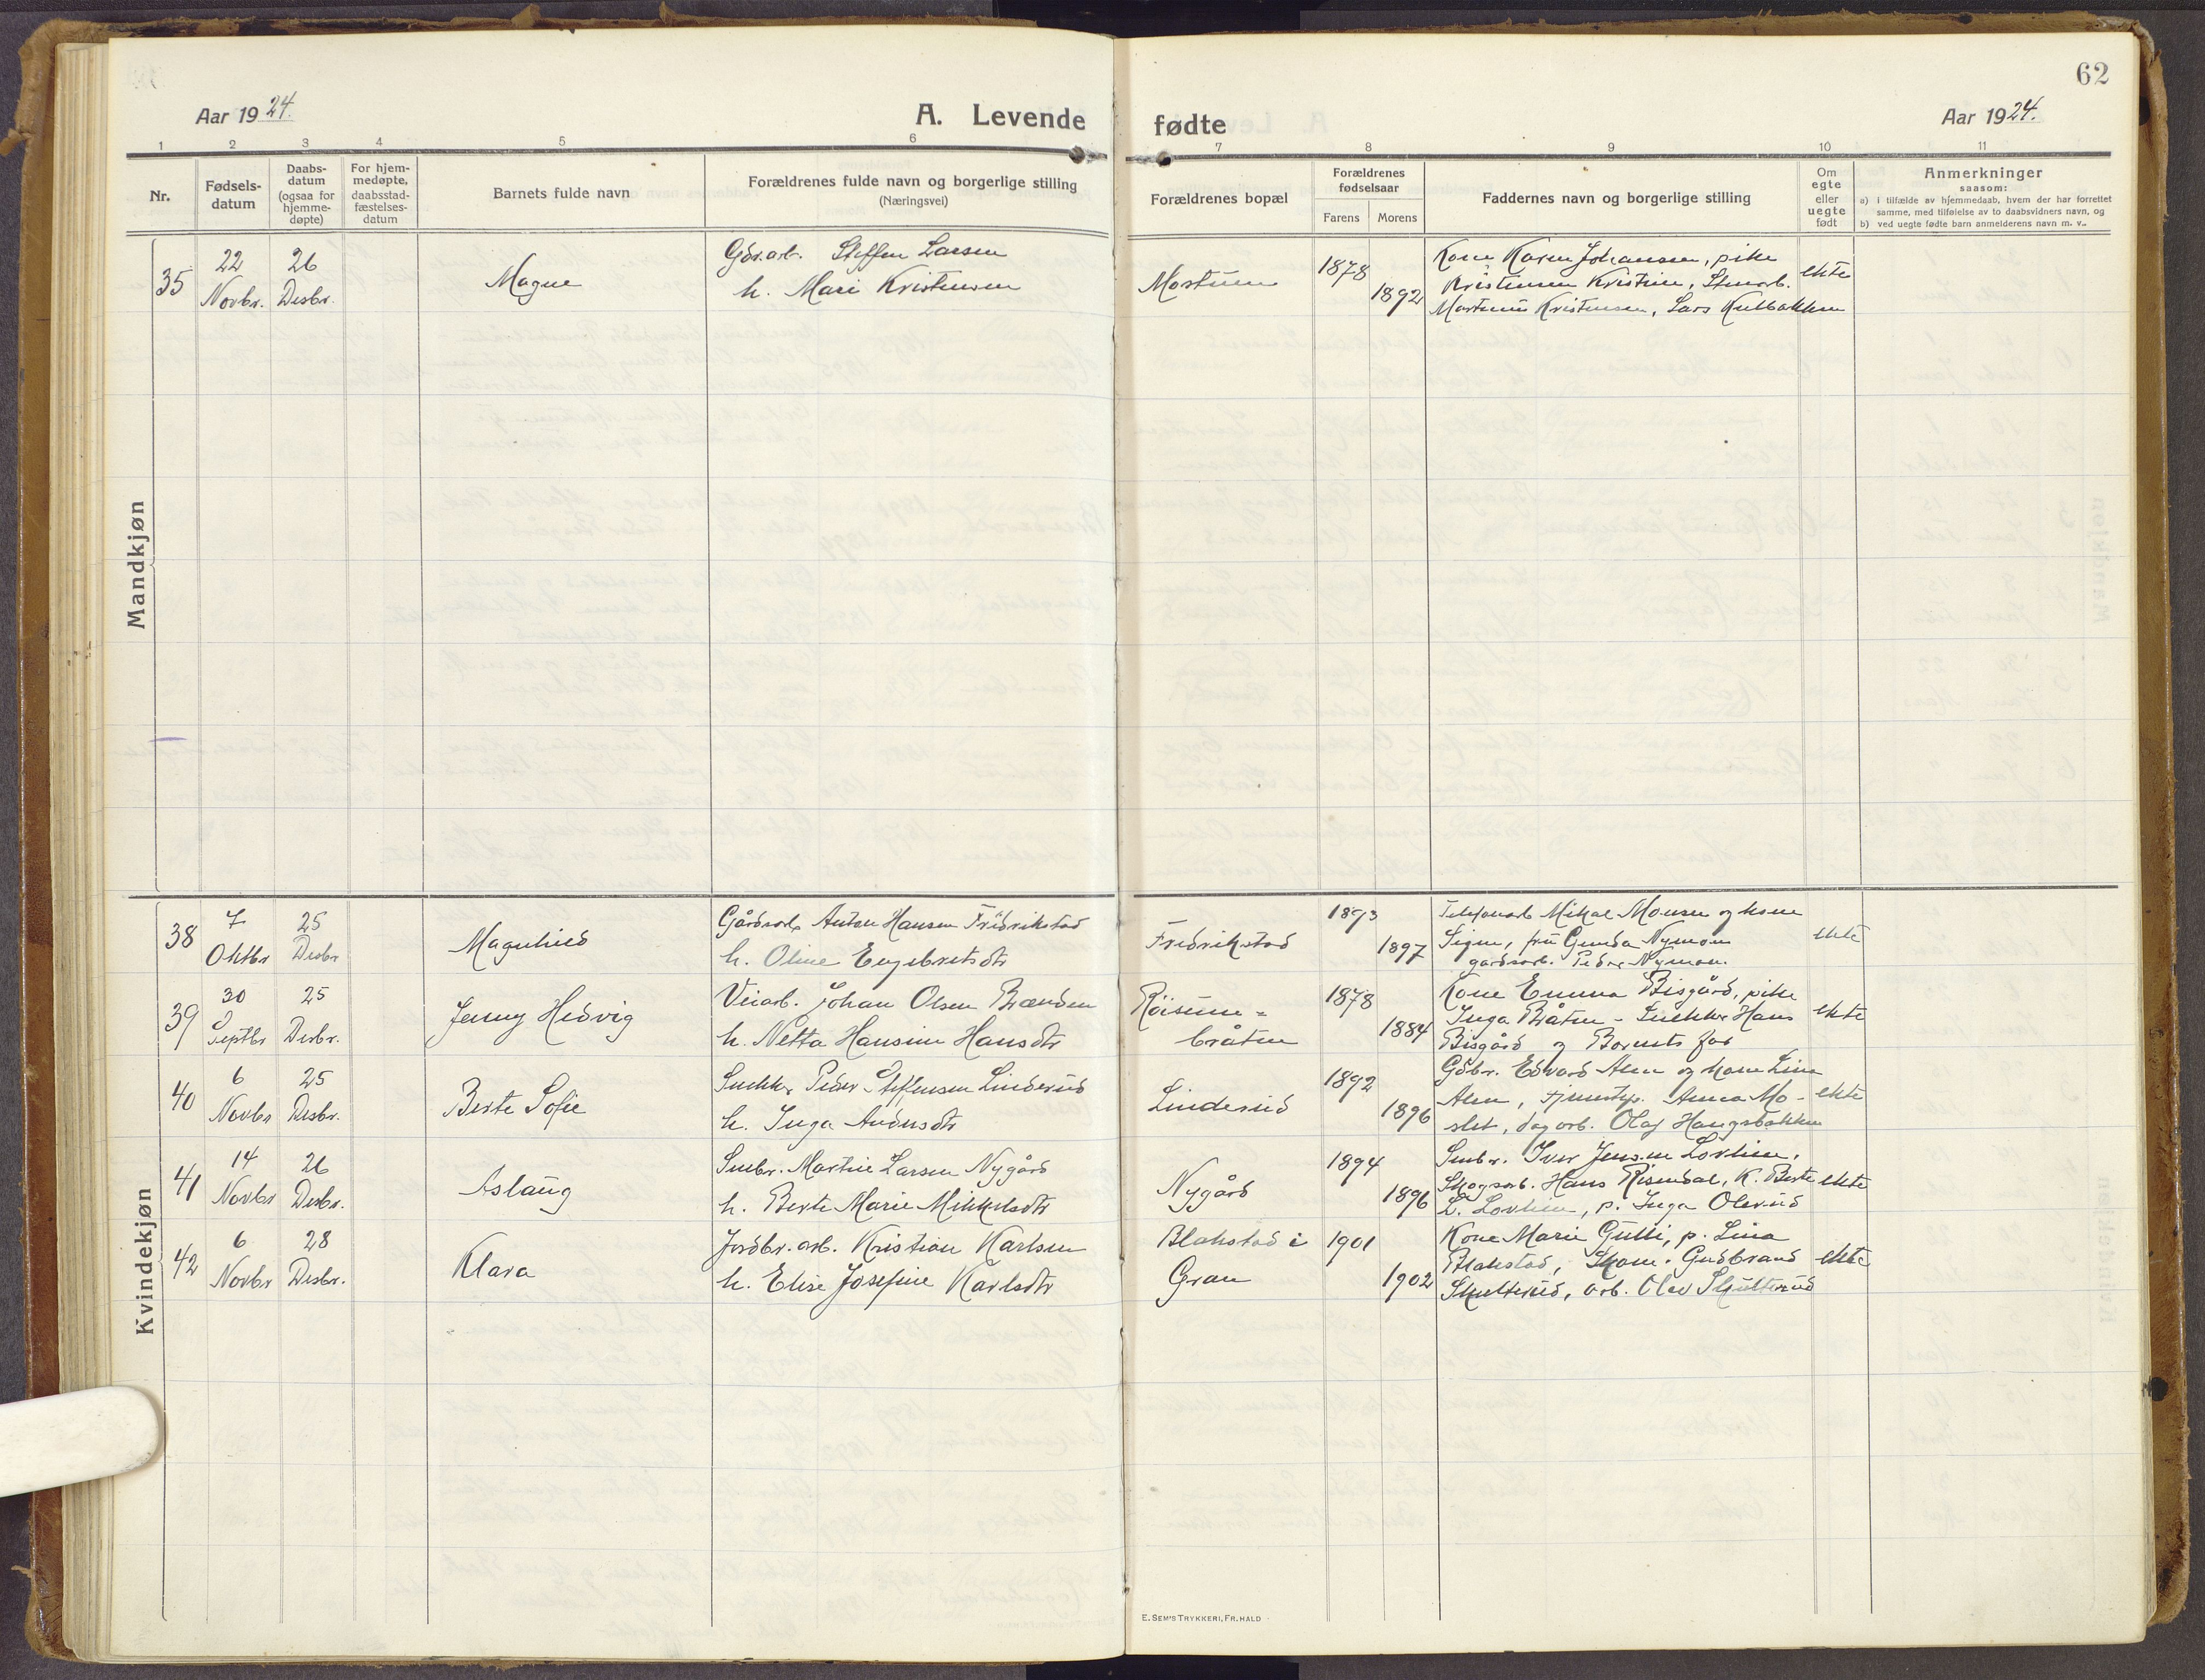 62
Aar 1924.
A. Levende
fødte
Aar 1924.
1 2 3 4 5 6 7 8 9 10 11
Nr.
Fødsels-
datum
Daabs-
datum
(ogsaa for
hjemme-
døpte)
For hjem-
medøpte,
daabsstad-
fæstelses-
datum
Barnets fulde navn
Forældrenes fulde navn og borgerlige stilling
(Næringsvei)
Forældrenes bopæl
Forældrenes
fødselsaar
Farens Morens
Faddernes navn og borgerlige stilling
Om
egte
eller
uegte
født
Anmerkninger
saasom:
a) i tilfælde av hjemmedaab, hvem der har forrettet
samme, med tilføielse av to daabsvidners navn, og
b) ved uegte fødte barn anmelderens navn m. v..
Mandkjøn
35
22
Novbr.
26
Desbr.
Magne
Gdsarb. Steffen Larsen
h. Mari Kristensen
Mostuen
1878
1892
Kone Karen Johanssen, pike
Kristense Kristine, Stenarb.
Martinus Kristensen, Lars Kulbakken
ekte
Kvindekjøn
38
7
Oktbr
25
Desbr
Magnhild
Gårdsarb. Anton Hansen Fredrikstad
h. Oline Engebretsdtr
Fredrikstad
1893
1897
Telefonarb Mikal Monsen og kone
Signe, frü Gunda Nyman
gardsarb. Peder Nyman.
ekte
39
30
Septbr
25
Desbr.
Jenny Hedvig
Veiarb. Johan Olsen Brænden
h. Netta Hansine Hansdtr
Røisum-
bråten
1878
1884
Kone Emma Bisgård, pike
Inga Bråten - Snekker Hans
Bisgård og Barnets far
ekte
40
6
Novbr
25
Desbr.
Berte Sofie
Snekk. Peder Steffensen Linderud
h. Inga Andersdtr
Linderud
1892
1896
Gdbr. Edvard Alm og kone Lina
Alm, tjenestp. Anna Mo-
slet, dagarb. Olaf Haugsbakken
ekte
41
14
Novbr
26
Desbr.
Aslaug
Smbr. Martin Larsen Nygård
h. Berte Marie Mikkelsdtr
Nygård
1894
1896
Smbr. Iver Jensen Lovlien,
Skogsarb. Hans Risendal, K. Berte
L. Lovlien, p. Inga Olerud
ekte
42
6
Novbr
28
Desbr.
Klara
Jordbr. arb. Kristian Karlsen
h. Elise Josefine Karlsdtr
Blakstad i
Gran
1901
1902
Kone Marie Gulli, p. Lina
Blakstad, Skom. Gudbrand
Skutterud, arb. Olav Skutterud
ekte
E. SEM'S TRYKKERI, FR.HALD